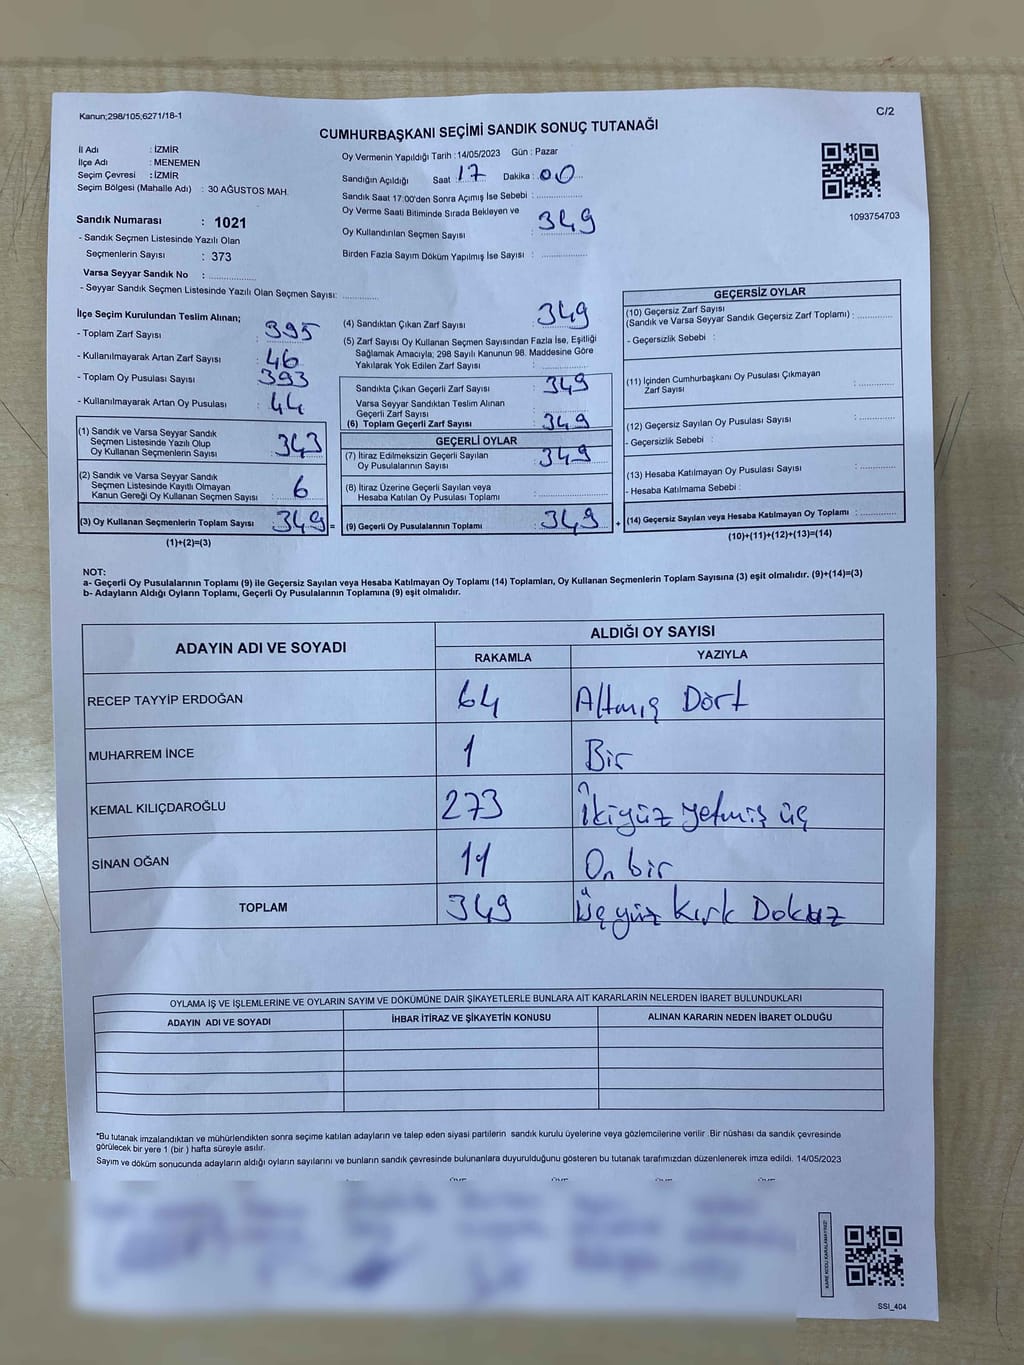 Kanun;298/105;6271/18-1
C/2
CUMHURBAŞKANI SEÇİMİ SANDIK SONUÇ TUTANAĞI
İl Adı : İZMİR
İlçe Adı : MENEMEN
Seçim Çevresi : İZMİR
Seçim Bölgesi (Mahalle Adı) : 30 AĞUSTOS MAH.
Sandık Numarası : 1021
- Sandık Seçmen Listesinde Yazılı Olan
Seçmenlerin Sayısı : 373
Varsa Seyyar Sandık No : ..............
- Seyyar Sandık Seçmen Listesinde Yazılı Olan Seçmen Sayısı: ............
Oy Vermenin Yapıldığı Tarih : 14/05/2023 Gün : Pazar
Sandığın Açıldığı Saat : 17 Dakika : 00
Sandık Saat 17:00'den Sonra Açımış İse Sebebi : ..............
Oy Verme Saati Bitiminde Sırada Bekleyen ve
Oy Kullandırılan Seçmen Sayısı : 349
Birden Fazla Sayım Döküm Yapılmış İse Sayısı : ..............
1093754703
İlçe Seçim Kurulundan Teslim Alınan;
- Toplam Zarf Sayısı : 395
- Kullanılmayarak Artan Zarf Sayısı : 46
- Toplam Oy Pusulası Sayısı : 393
- Kullanılmayarak Artan Oy Pusulası : 44
(1) Sandık ve Varsa Seyyar Sandık
Seçmen Listesinde Yazılı Olup
Oy Kullanan Seçmenlerin Sayısı : 343
(2) Sandık ve Varsa Seyyar Sandık
Seçmen Listesinde Kayıtlı Olmayan
Kanun Gereği Oy Kullanan Seçmen Sayısı : 6
(3) Oy Kullanan Seçmenlerin Toplam Sayısı : 349 =
(1)+(2)=(3)
(4) Sandıktan Çıkan Zarf Sayısı : 349
(5) Zarf Sayısı Oy Kullanan Seçmen Sayısından Fazla İse, Eşitliği
Sağlamak Amacıyla; 298 Sayılı Kanunun 98. Maddesine Göre
Yakılarak Yok Edilen Zarf Sayısı : ..............
Sandıkta Çıkan Geçerli Zarf Sayısı : 349
Varsa Seyyar Sandıktan Teslim Alınan
Geçerli Zarf Sayısı : ..............
(6) Toplam Geçerli Zarf Sayısı : 349
GEÇERLİ OYLAR
(7) İtiraz Edilmeksizin Geçerli Sayılan
Oy Pusulalarının Sayısı : 349
(8) İtiraz Üzerine Geçerli Sayılan veya
Hesaba Katılan Oy Pusulası Toplamı : ..............
(9) Geçerli Oy Pusulalarının Toplamı : 349 +
GEÇERSİZ OYLAR
(10) Geçersiz Zarf Sayısı
(Sandık ve Varsa Seyyar Sandık Geçersiz Zarf Toplamı) : ............
- Geçersizlik Sebebi :
(11) İçinden Cumhurbaşkanı Oy Pusulası Çıkmayan
Zarf Sayısı : ............
(12) Geçersiz Sayılan Oy Pusulası Sayısı : ............
- Geçersizlik Sebebi :
(13) Hesaba Katılmayan Oy Pusulası Sayısı : ............
- Hesaba Katılmama Sebebi :
(14) Geçersiz Sayılan veya Hesaba Katılmayan Oy Toplamı : ............
(10)+(11)+(12)+(13)=(14)
NOT:
a- Geçerli Oy Pusulalarının Toplamı (9) ile Geçersiz Sayılan veya Hesaba Katılmayan Oy Toplamı (14) Toplamları, Oy Kullanan Seçmenlerin Toplam Sayısına (3) eşit olmalıdır. (9)+(14)=(3)
b- Adayların Aldığı Oyların Toplamı, Geçerli Oy Pusulalarının Toplamına (9) eşit olmalıdır.
ADAYIN ADI VE SOYADI ALDIĞI OY SAYISI
RAKAMLA YAZIYLA
RECEP TAYYİP ERDOĞAN 64 Altmış Dört
MUHARREM İNCE 1 Bir
KEMAL KILIÇDAROĞLU 273 İkiyüz yetmiş üç
SİNAN OĞAN 11 On bir
TOPLAM 349 Üç yüz Kırk Dokuz
OYLAMA İŞ VE İŞLEMLERİNE VE OYLARIN SAYIM VE DÖKÜMÜNE DAİR ŞİKAYETLERLE BUNLARA AİT KARARLARIN NELERDEN İBARET BULUNDUKLARI
ADAYIN ADI VE SOYADI İHBAR İTİRAZ VE ŞİKAYETİN KONUSU ALINAN KARARIN NEDEN İBARET OLDUĞU
*Bu tutanak imzalandıktan ve mühürlendikten sonra seçime katılan adayların ve talep eden siyasi partilerin sandık kurulu üyelerine veya gözlemcilerine verilir .Bir nüshası da sandık çevresinde
görülecek bir yere 1 (bir ) hafta süreyle asılır.
Sayım ve döküm sonucunda adayların aldığı oyların sayılarını ve bunların sandık çevresinde bulunanlara duyurulduğunu gösteren bu tutanak tarafımızdan düzenlenerek imza edildi. 14/05/2023
KARE KODU KARALAMAYINIZ!
SSI_404